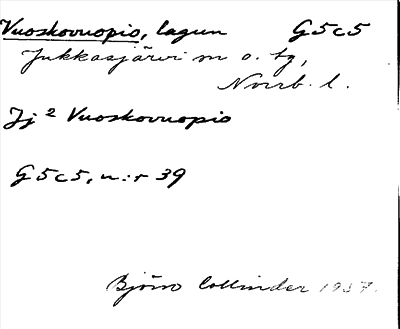 Vuoskovuopio, lagun G5c5
Jukkasjärvi sn o. tg,
Norrb. l.
Jj 2 Vuoskovuopio
G5c5, n:r 39
Björn Collinder 1937.